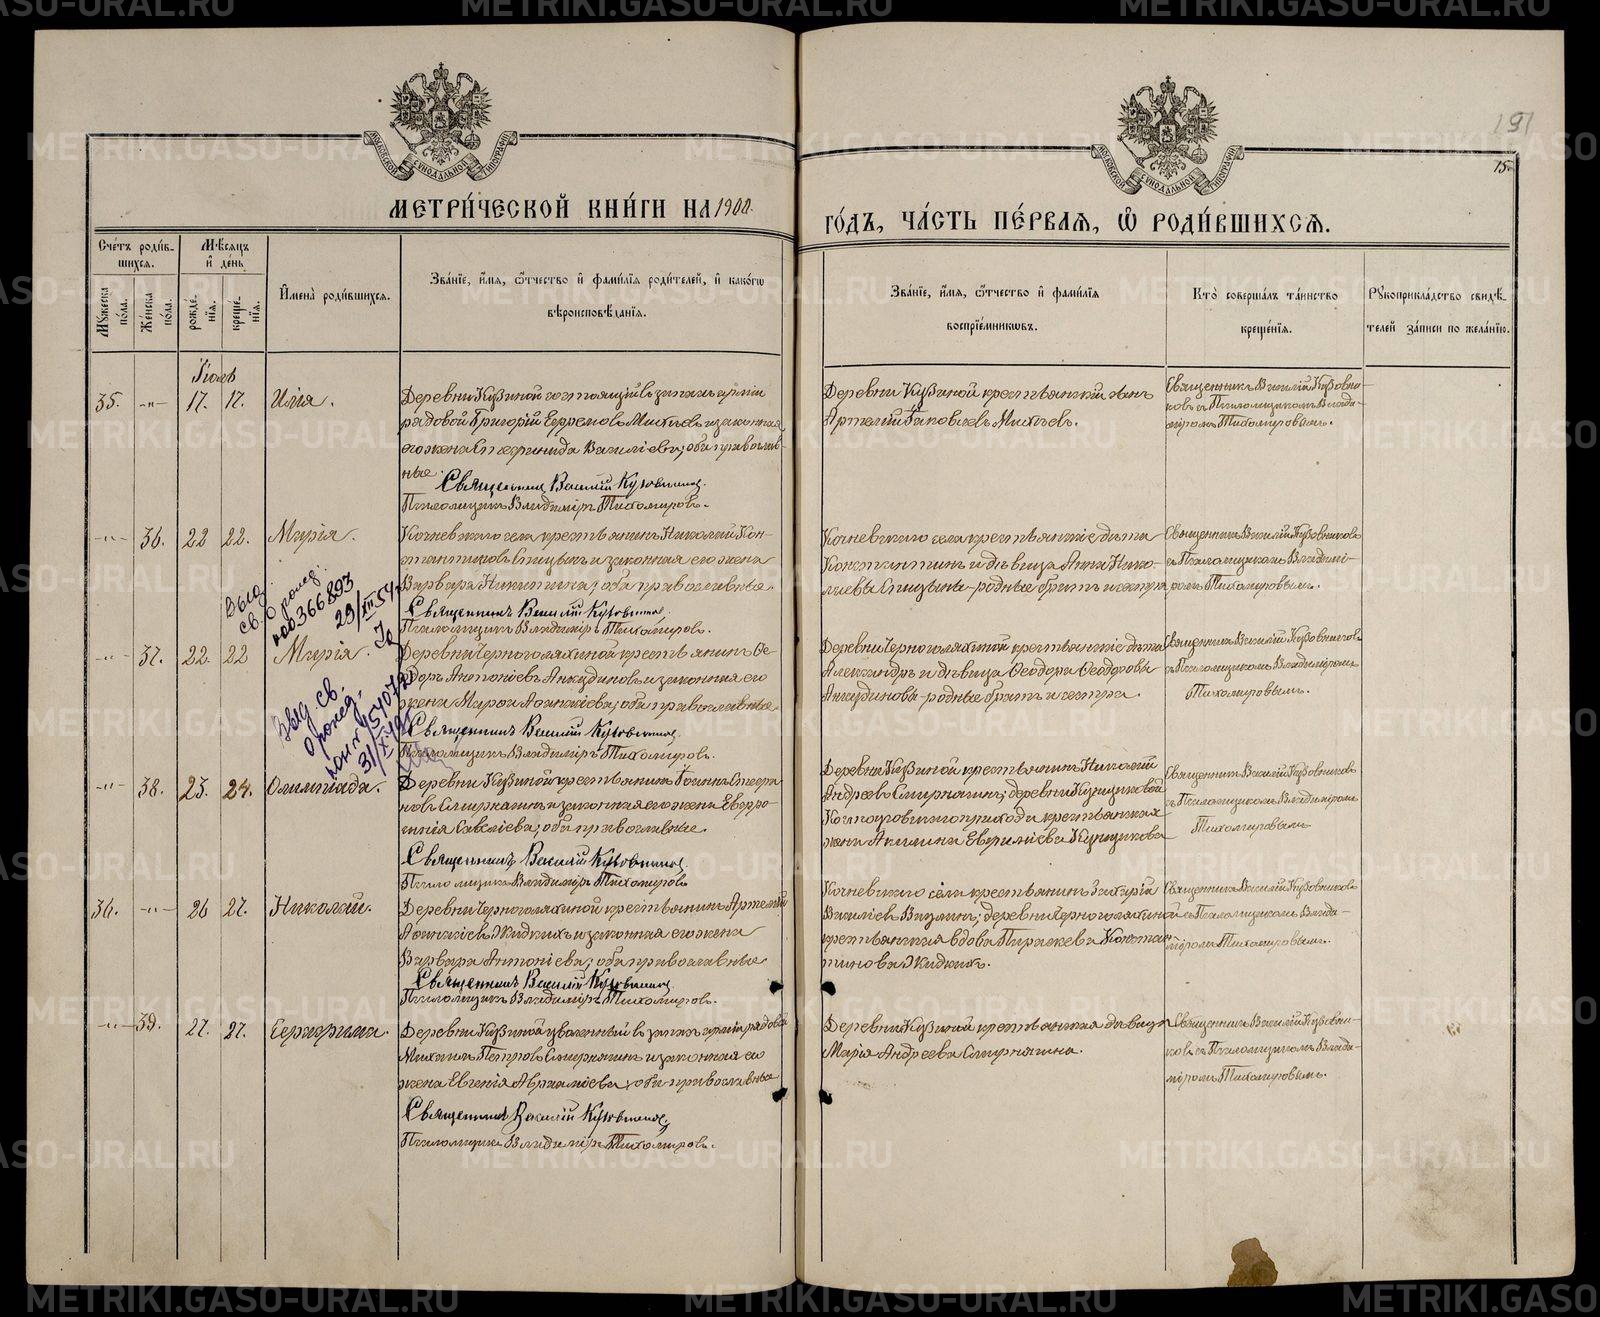 191
15.
МОСКОВСКОЙ СѴНОДАЛЬНОЙ ТИПОГРАФІИ
МОСКОВСКОЙ СѴНОДАЛЬНОЙ ТИПОГРАФІИ
МЕТРИ́ЧЕСКОЙ КНИ́ГИ НА 1900.
ГО́ДЪ, ЧА́СТЬ ПЕ́РВАЯ, Ѽ РОДИ́ВШИХСЯ.
Сче́тъ роди́в-
шихся.
Мужеска по́ла.
Же́нска по́ла.
Мѣ́сяцъ
и҆ де́нь
рожде́-
нїя.
креще́-
нїя.
И҆мена̀ роди́вшихся.
Зва́нїе, и҆́мя, ѿ́чество и҆ фами́лїя роди́телей, и҆ како́гѡ
вѣроисповѣ́данїя.
Зва́нїе, и҆́мя, ѿ́чество и҆ фами́лїя
воспрїе́мникѡвъ.
Кто̀ соверша́лъ та́инство
креще́нїя.
Рꙋкоприкла́дство свидѣ́-
телей за́писи по жела́нїю.
Іюль
35. -„- 17. 17. Илія.
Деревни Кузиной состоящій въ запасѣ арміи
рядовой Григорій Ефремовъ Михѣевъ и законная
его жена Спиридонида Василіева; оба православ-
ные.
Священникъ Василій Кузовниковъ.
Псаломщикъ Владиміръ Тихомировъ.
Деревни Кузиной крестьянскій сынъ
Артемій Іаковлевъ Михѣевъ.
Священникъ Василій Кузовни-
ковъ съ Псаломщикомъ Влади-
міромъ Тихомировымъ.
-„- 36. 22 22. Марія.
Кочневскаго села крестьянинъ Николай Кон-
стантиновъ Спицынъ и законная его жена
Варвара Никитина; оба православные
Священникъ Василій Кузовниковъ.
Псаломщикъ Владиміръ Тихомировъ.
Кочневскаго села крестьянскіе дѣти
Константинъ и дѣвица Анна Нико-
лаевы Спицыны - родные братъ и сестра
Священникъ Василій Кузовниковъ
съ Псаломщикомъ Владимі-
ромъ Тихомировымъ.
Выд.
св. о рожд.
№ 366893
29/XII 54
-„- 37. 22. 22 Марія.
Деревни Черноголяхиной крестьянинъ Ѳе-
доръ Антоніевъ Анкудиновъ и законная его
жена Марѳа Аѳанасіева; оба православные
Священникъ Василій Кузовниковъ.
Псаломщикъ Владиміръ Тихомировъ.
Деревни Черноголяхиной крестьянскіе дѣти
Александръ и дѣвица Ѳеодора Ѳеодоровы
Анкудиновы - родные братъ и сестра.
Священникъ Василій Кузовниковъ
съ Псаломщикомъ Владиміромъ
Тихомировымъ.
Выд. св.
о рожд.
-„- 38. 23. 24. Олимпіада.
Деревни Кузиной крестьянинъ Іоаннъ Стефа-
новъ Смирнягинъ и законная его жена Евфро-
синія Савеліева; оба православные.
Священникъ Василій Кузовниковъ.
Псаломщикъ Владиміръ Тихомировъ
Деревни Кузиной крестьянинъ Николай
Андреевъ Смирнягинъ; деревни Кунщиковой
прихода крестьянская
жена Акилина Кунщикова
Священникъ Василій Кузовниковъ
съ Псаломщикомъ Владиміромъ
Тихомировымъ
36. -„- 26 27. Николай.
Деревни Черноголяхиной крестьянинъ Артемій
Аѳанасіевъ Жидкихъ и законная его жена
Варвара Антоніева; оба православные
Священникъ Василій Кузовниковъ.
Псаломщикъ Владиміръ Тихомировъ.
Кочневскаго села крестьянинъ Захарія
Василіевъ; деревни Черноголяхиной
крестьянская вдова Параскева Констан-
тинова Жидкихъ.
Священникъ Василій Кузовниковъ
съ Псаломщикомъ Влади-
міромъ Тихомировымъ.
-„- 39. 27. 27. Серафима.
Деревни Кузиной уволенный въ запасъ арміи рядовой
Михаилъ Петровъ Смирнягинъ и законная его
жена Евгенія Авраміева; оба православные
Священникъ Василій Кузовниковъ.
Псаломщикъ Владиміръ Тихомировъ.
Деревни Кузиной крестьянская дѣвица
Марія Андреева Смирнягина.
Священникъ Василій Кузовни-
ковъ съ Псаломщикомъ Влади-
міромъ Тихомировымъ.
METRIKI.GASO-URAL.RU